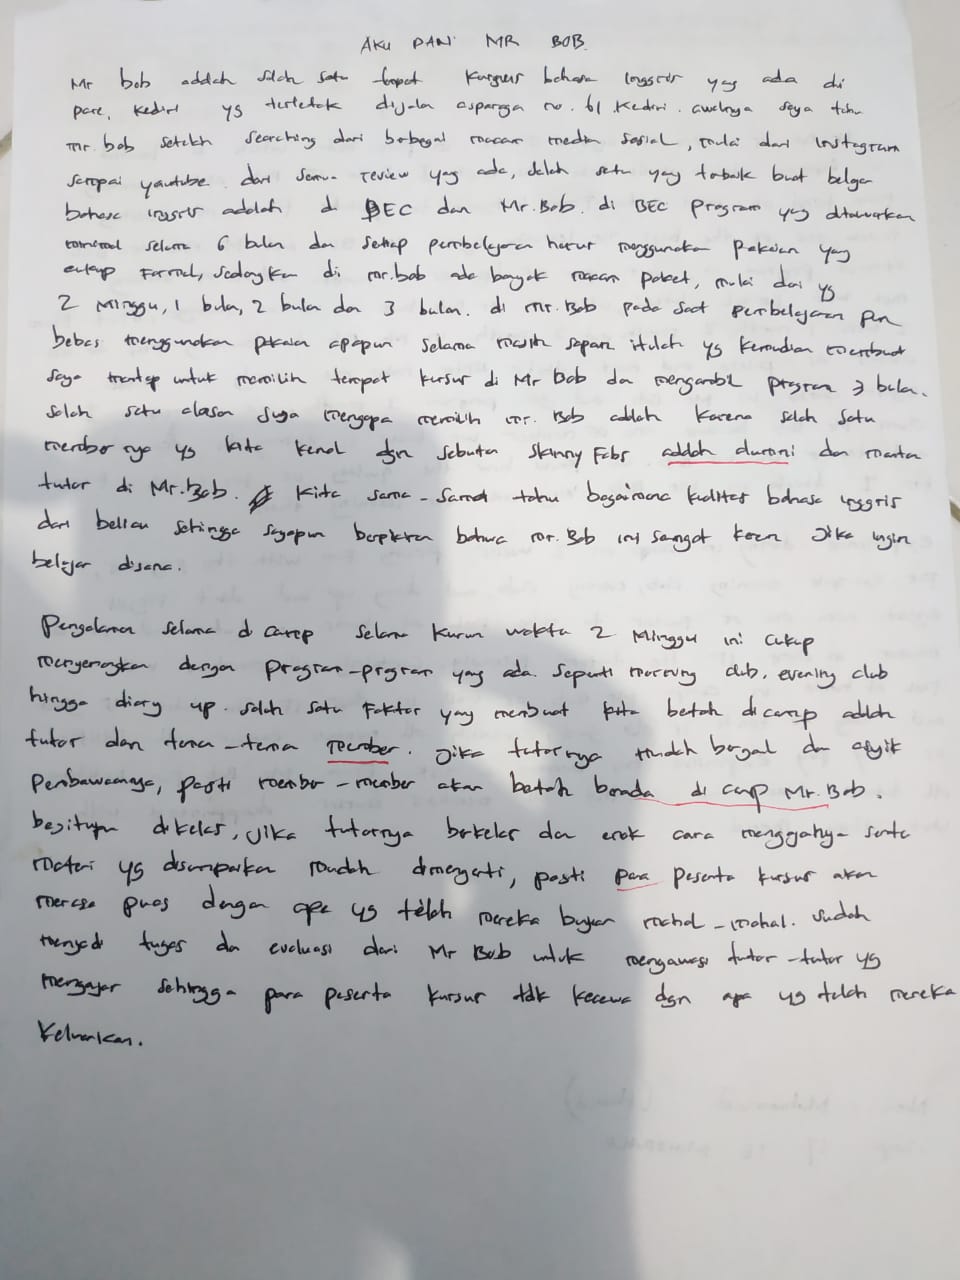 AKU DAN MR BOB
Mr bob adalah salah satu tempat kursus bahasa inggris yang ada di
pare, kediri yg terletak dijalan asparaga no. 61 kediri. awalnya saya tahu
mr. bob setelah searching dari berbagai macam media sosial, mulai dari instagram
sampai youtube. dari semua review yang ada, salah satu yang terbaik buat belajar
bahasa inggris adalah di BEC dan Mr. Bob. di BEC program yang ditawarkan
minimal selama 6 bulan dan setiap pembelajaran harus menggunakan pakaian yang
cukup formal, sedangkan di mr. bob ada banyak macam paket, mulai dari yg
2 Minggu, 1 bulan, 2 bulan dan 3 bulan. di Mr. Bob pada saat pembelajaran pun
bebas menggunakan pakaian apapun selama masih sopan itulah yg kemudian membuat
saya mantap untuk memilih tempat kursus di Mr Bob dan mengambil program 3 bulan.
salah satu alasan juga mengapa memilih mr. Bob adalah karena salah satu
member nya yg kita kenal dgn sebutan Skinny Fabs adalah alumni dan mantan
tutor di Mr. Bob. Kita sama-sama tahu bagaimana kualitas bahasa inggris
dari beliau sehingga sayapun berpikiran bahwa mr. Bob ini sangat keren jika ingin
belajar disana.
Pengalaman selama di camp selama kurun waktu 2 Minggu ini cukup
menyenangkan dengan program-program yang ada. seperti morning club, evening club
hingga diary up. salah satu faktor yang membuat kita betah di camp adalah
tutor dan teman-teman member. Jika tutornya mudah bergaul dan asyik
Pembawaannya, pasti member-member akan betah berada di camp Mr. Bob.
begitupun dikelas, jika tutornya berkelas dan enak cara mengajarnya serta
materi yg disampaikan mudah dimengerti, pasti para peserta kursus akan
merasa puas dengan apa yg telah mereka bayar mahal-mahal. Sudah
menjadi tugas dan evaluasi dari Mr Bob untuk mengawasi tutor-tutor yg
mengajar sehingga para peserta kursus tdk kecewa dgn apa yg telah mereka
keluarkan.